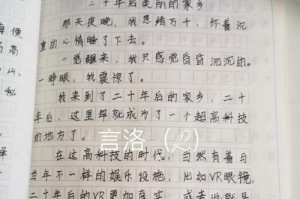 二十年后美丽的家乡
那天夜晚，我思绪万千，怀着沉
重的心情睡了下去。
一觉醒来，我只感觉自昏沉沉的。
一睁眼，我震惊了。
我来到了二十年后的家乡，二十
年后，这里早就成为了一个超高科技
的地方了。
言洛
在这高科技的时代，当然有着与
当年不一样的娱乐设施，比如VR眼镜，
二十年后的VR更加真实